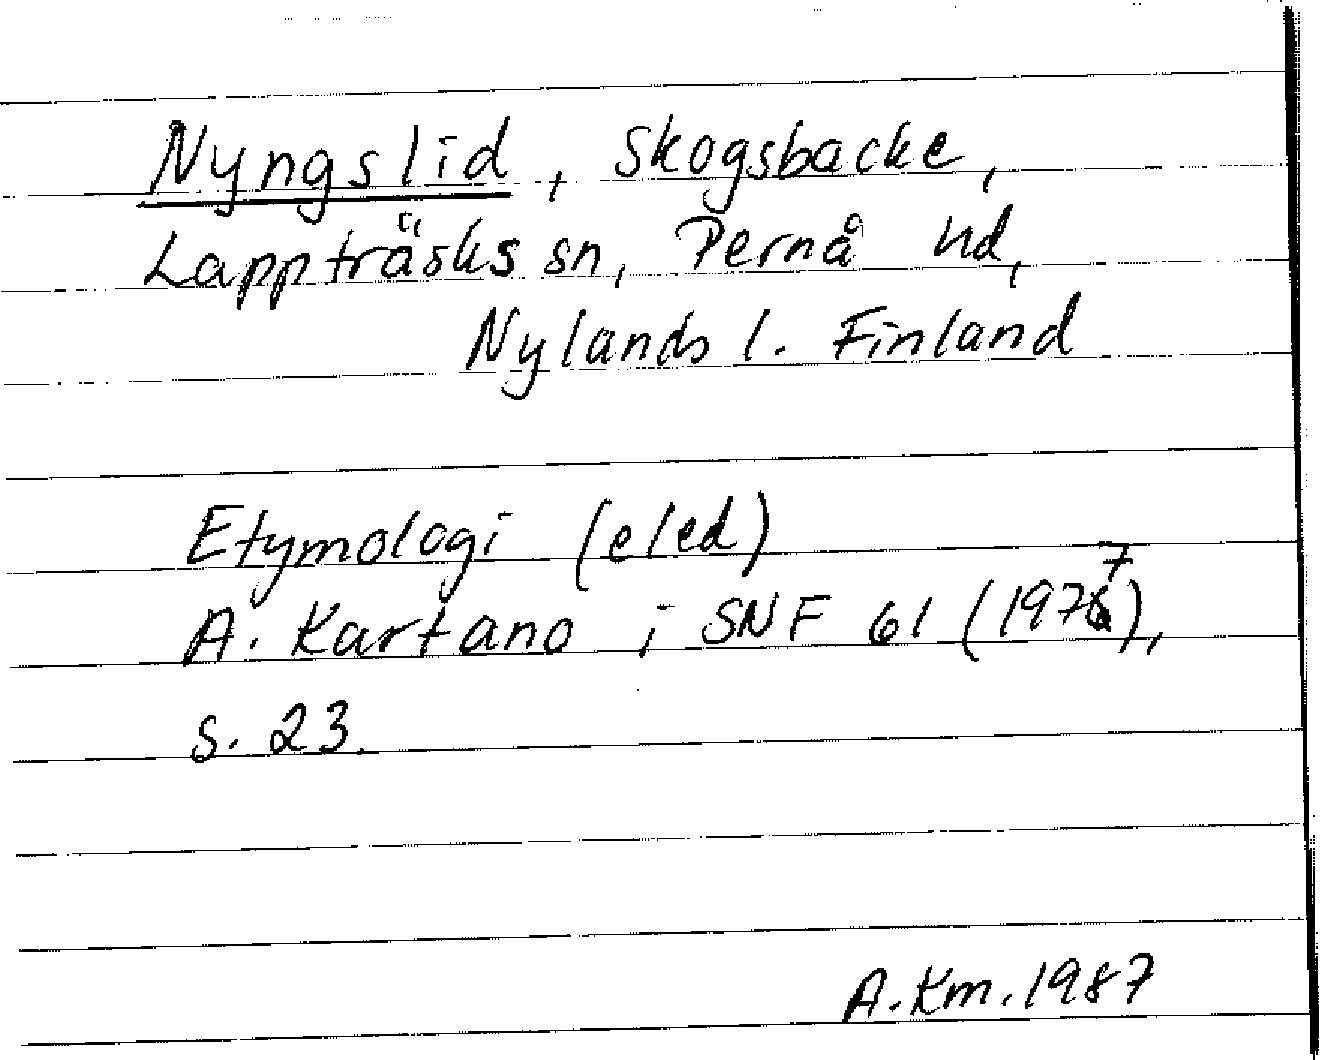 Nyngslid, Skogsbacke,
Lappträsks sn, Pernå hd,
Nylands l. Finland
Etymologi (eled)
A. Kartano i SNF 61 (1977),
s. 23.
A.Km. 1987